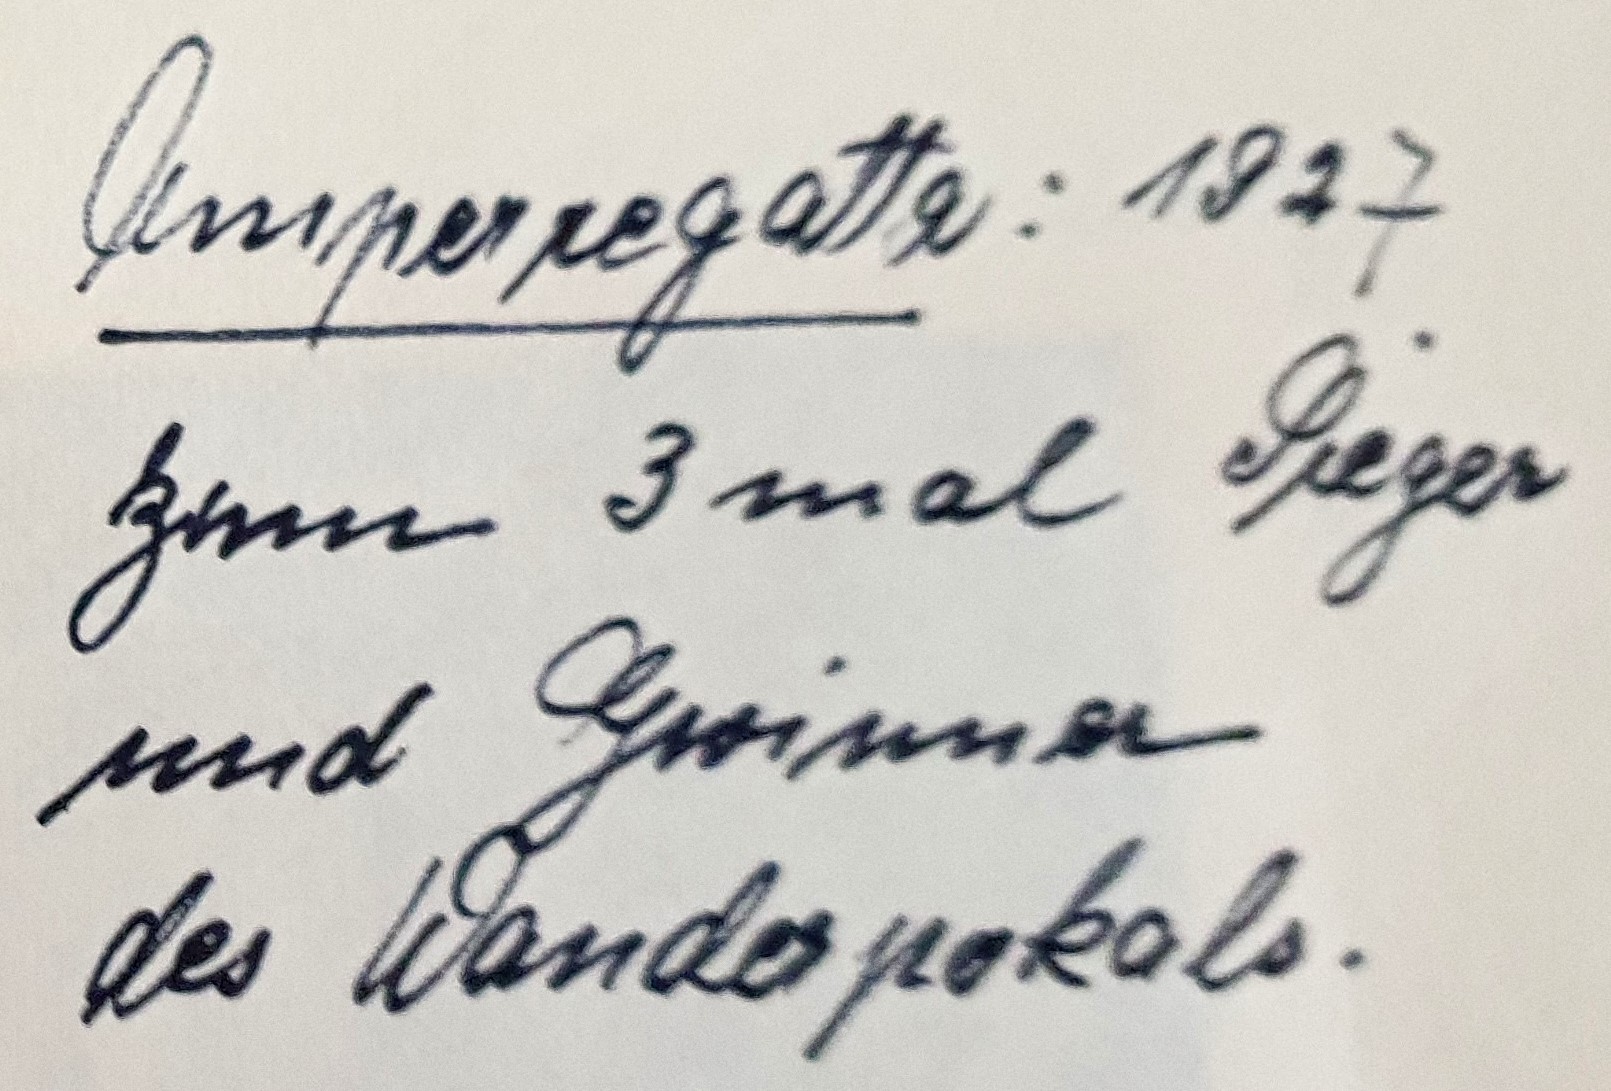 Amperregatta: 1927
zum 3 mal Sieger
und Gwinner
des Wanderpokals.